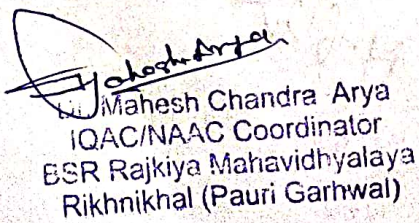 Mahesh Arya
Mahesh Chandra Arya
IQAC/NAAC Coordinator
BSR Rajkiya Mahavidhyalaya
Rikhnikhal (Pauri Garhwal)